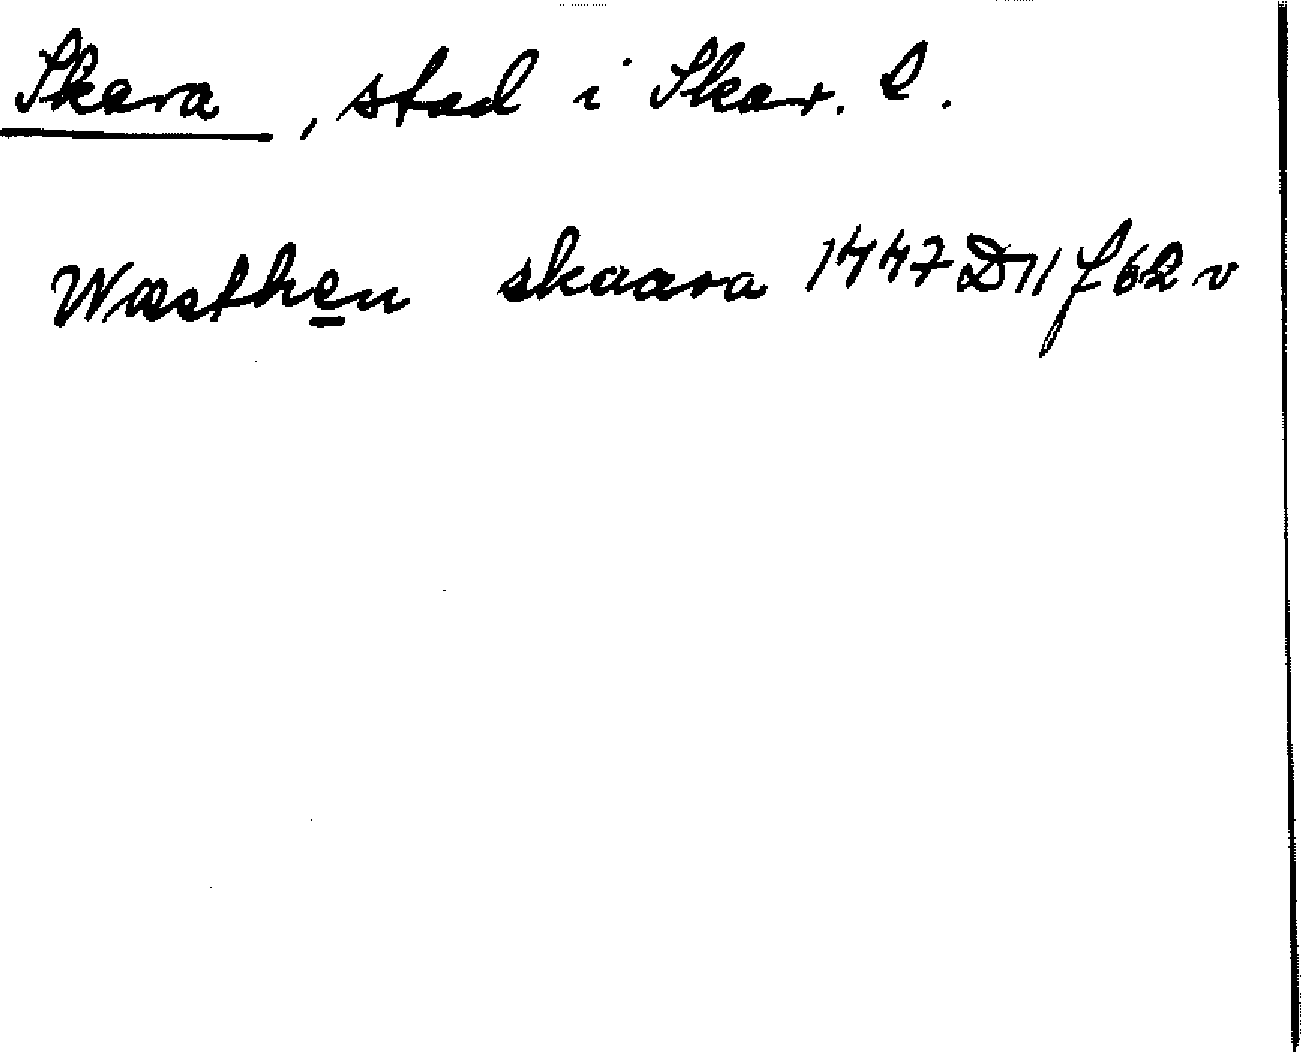 Skara, stad i Skar. l.
Wæsthen skaara 1447 D11 f 62 v